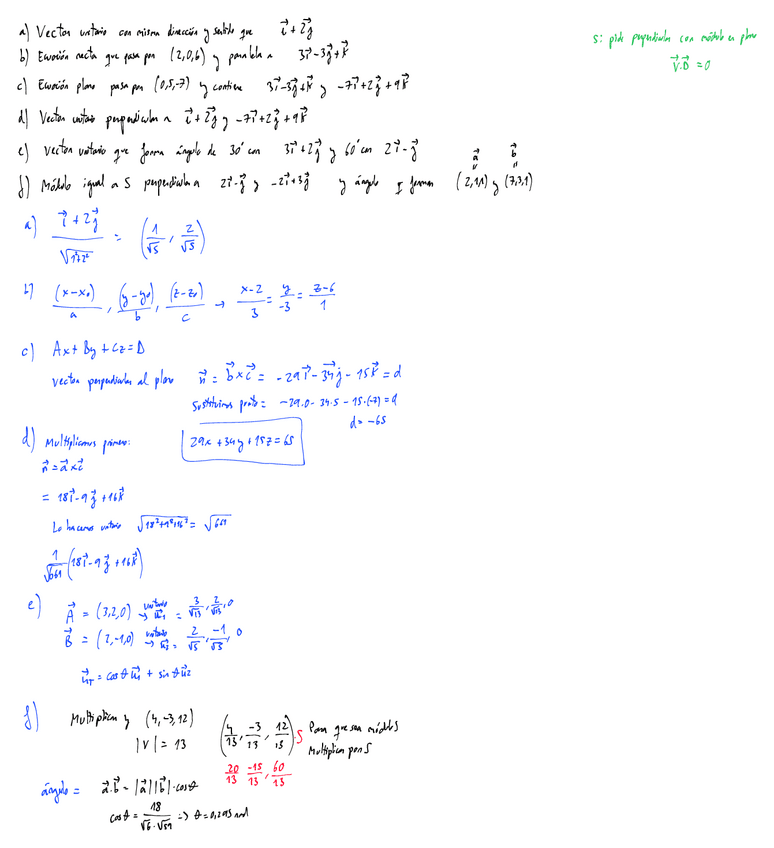 a) Vector unitario con misma dirección y sentido que i⃗ + 2j⃗
b) Ecuación recta que pasa por (2,0,6) y paralela a 3i⃗ - 3j⃗ + k⃗
c) Ecuación plano pasa por (0,5,-7) y contiene 3i⃗ - 3j⃗ + k⃗ y -7i⃗ + 2j⃗ + 9k⃗
d) Vector unitario perpendicular a i⃗ + 2j⃗ y -7i⃗ + 2j⃗ + 9k⃗
e) Vector unitario que forma ángulo de 30° con 3i⃗ + 2j⃗ y 60° con 2i⃗ - j⃗
f) Módulo igual a 5 perpendicular a 2i⃗ - j⃗ y -2i⃗ + 3j⃗ y ángulo q forman (2,1,1) y (7,3,1)
a⃗ b⃗
S: pide perpendicular con módulo en plano
V⃗·D⃗ = 0
a) i⃗ + 2j⃗ / √1²+2² = (1/√5, 2/√5)
b) (x-x₀)/a, (y-y₀)/b, (z-z₀)/c → x-2/3 = y/-3 = z-6/1
c) Ax + By + Cz = D
vector perpendicular al plano n⃗ = b⃗ x c⃗ = -29i⃗ - 34j⃗ - 15k⃗ = d
Sustituimos punto = -29·0 - 34·5 - 15·(-7) = d
d = -65
29x + 34y + 15z = 65
d) Multiplicamos primero:
n⃗ = a⃗ x c⃗
= 18i⃗ - 9j⃗ + 16k⃗
Lo hacemos unitario √18²+9²+16² = √661
1/√661 (18i⃗ - 9j⃗ + 16k⃗)
e) A⃗ = (3,2,0) unitario → u⃗₁ = 3/√13, 2/√13, 0
B⃗ = (2,-1,0) unitario → u⃗₂ = 2/√5, -1/√5, 0
u⃗T = cos θ u⃗₁ + sin θ u⃗₂
f) Multiplicar y (4,-3,12)
|V| = 13
(4/13, -3/13, 12/13)·5 Para que sea módulo 5
Multiplica por 5
20/13 -15/13, 60/13
ángulo = a⃗·b⃗ = |a⃗||b⃗|·cos θ
cos θ = 18/√6·√59 => θ = 0,295 rad